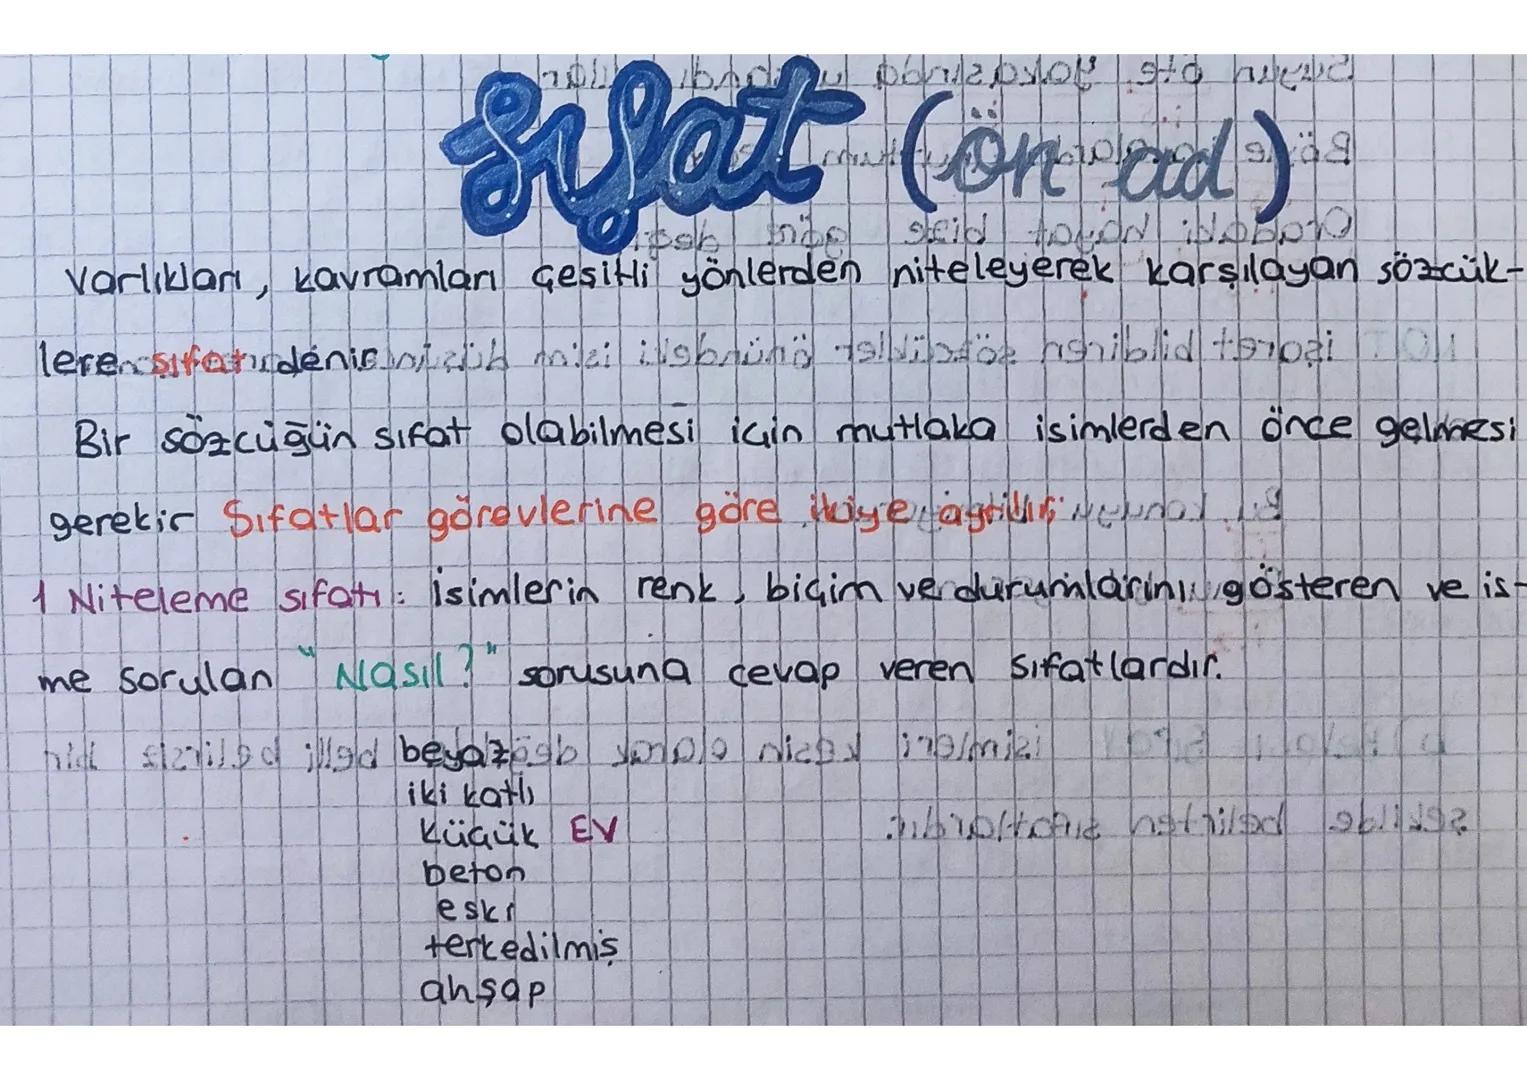 Sıfat (ön ad)
Varlıkları, kavramları çeşitli yönlerden niteleyerek karşılayan sözcük-
lere sıfat denir
Bir sözcüğün sıfat olabilmesi için mutlaka isimlerden önce gelmesi
gerekir Sıfatlar görevlerine göre ikiye ayrılır:
1 Niteleme sıfatı: İsimlerin renk, biçim ve durumlarını gösteren ve is-
me sorulan "Nasıl?" sorusuna cevap veren sıfatlardır.
beyaz
iki katlı
küçük EV
beton
eski
terkedilmiş
ahşap